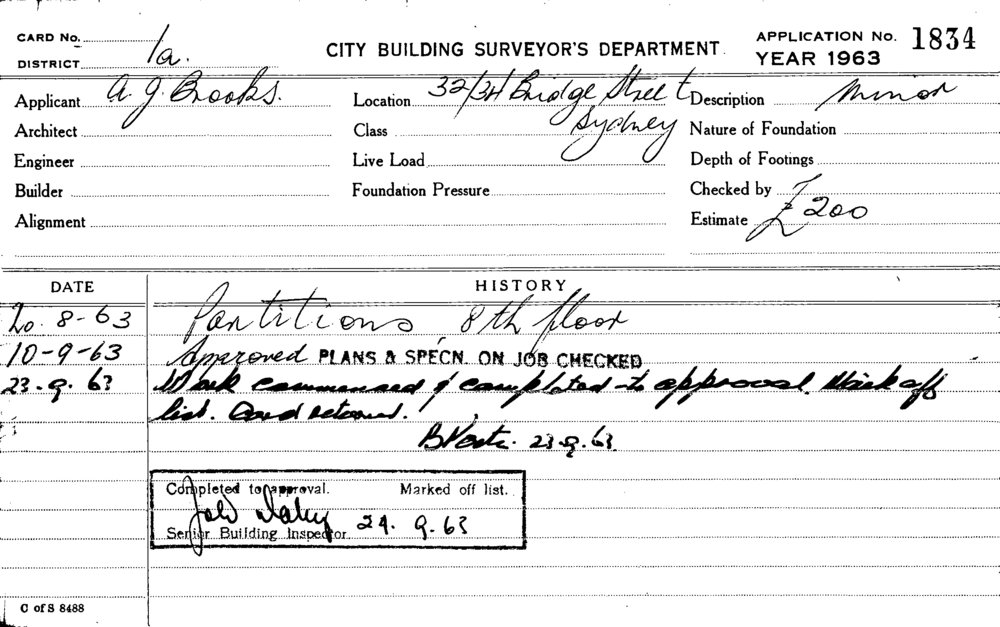 CARD No.
DISTRICT 1a.
CITY BUILDING SURVEYOR'S DEPARTMENT
APPLICATION No. 1834
YEAR 1963
Applicant A. J. Brooks.
Location 32/34 Bridge Street
Sydney
Description Minor
Architect
Class
Nature of Foundation
Engineer
Live Load
Depth of Footings
Builder
Foundation Pressure
Checked by
Alignment
Estimate £200
DATE
HISTORY
20. 8-63 Partitions 8th floor
10-9-63 Approved PLANS & SPECN. ON JOB CHECKED
23.9.63 Work commenced & completed to approval. Mark off
list. Card returned.
23.9.63.
Completed to approval. Marked off list.
Senior Building Inspector 24. 9.63
C of S 8488